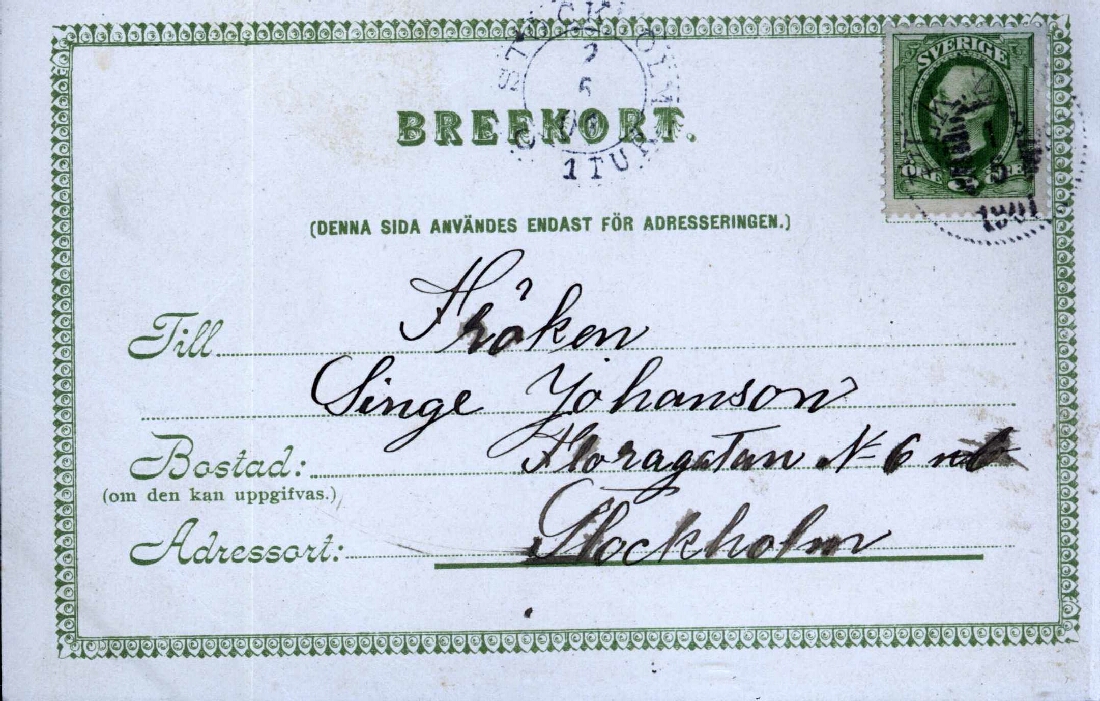 STOCKHOLM
2
5
01
1 TUR
BREFKORT.
SVERIGE
ÖRE
5
1901
(DENNA SIDA ANVÄNDES ENDAST FÖR ADRESSERINGEN.)
Till Fröken
Singe Johanson
Bostad: Floragatan N 6 nb
(om den kan uppgifvas.)
Adressort: Stockholm